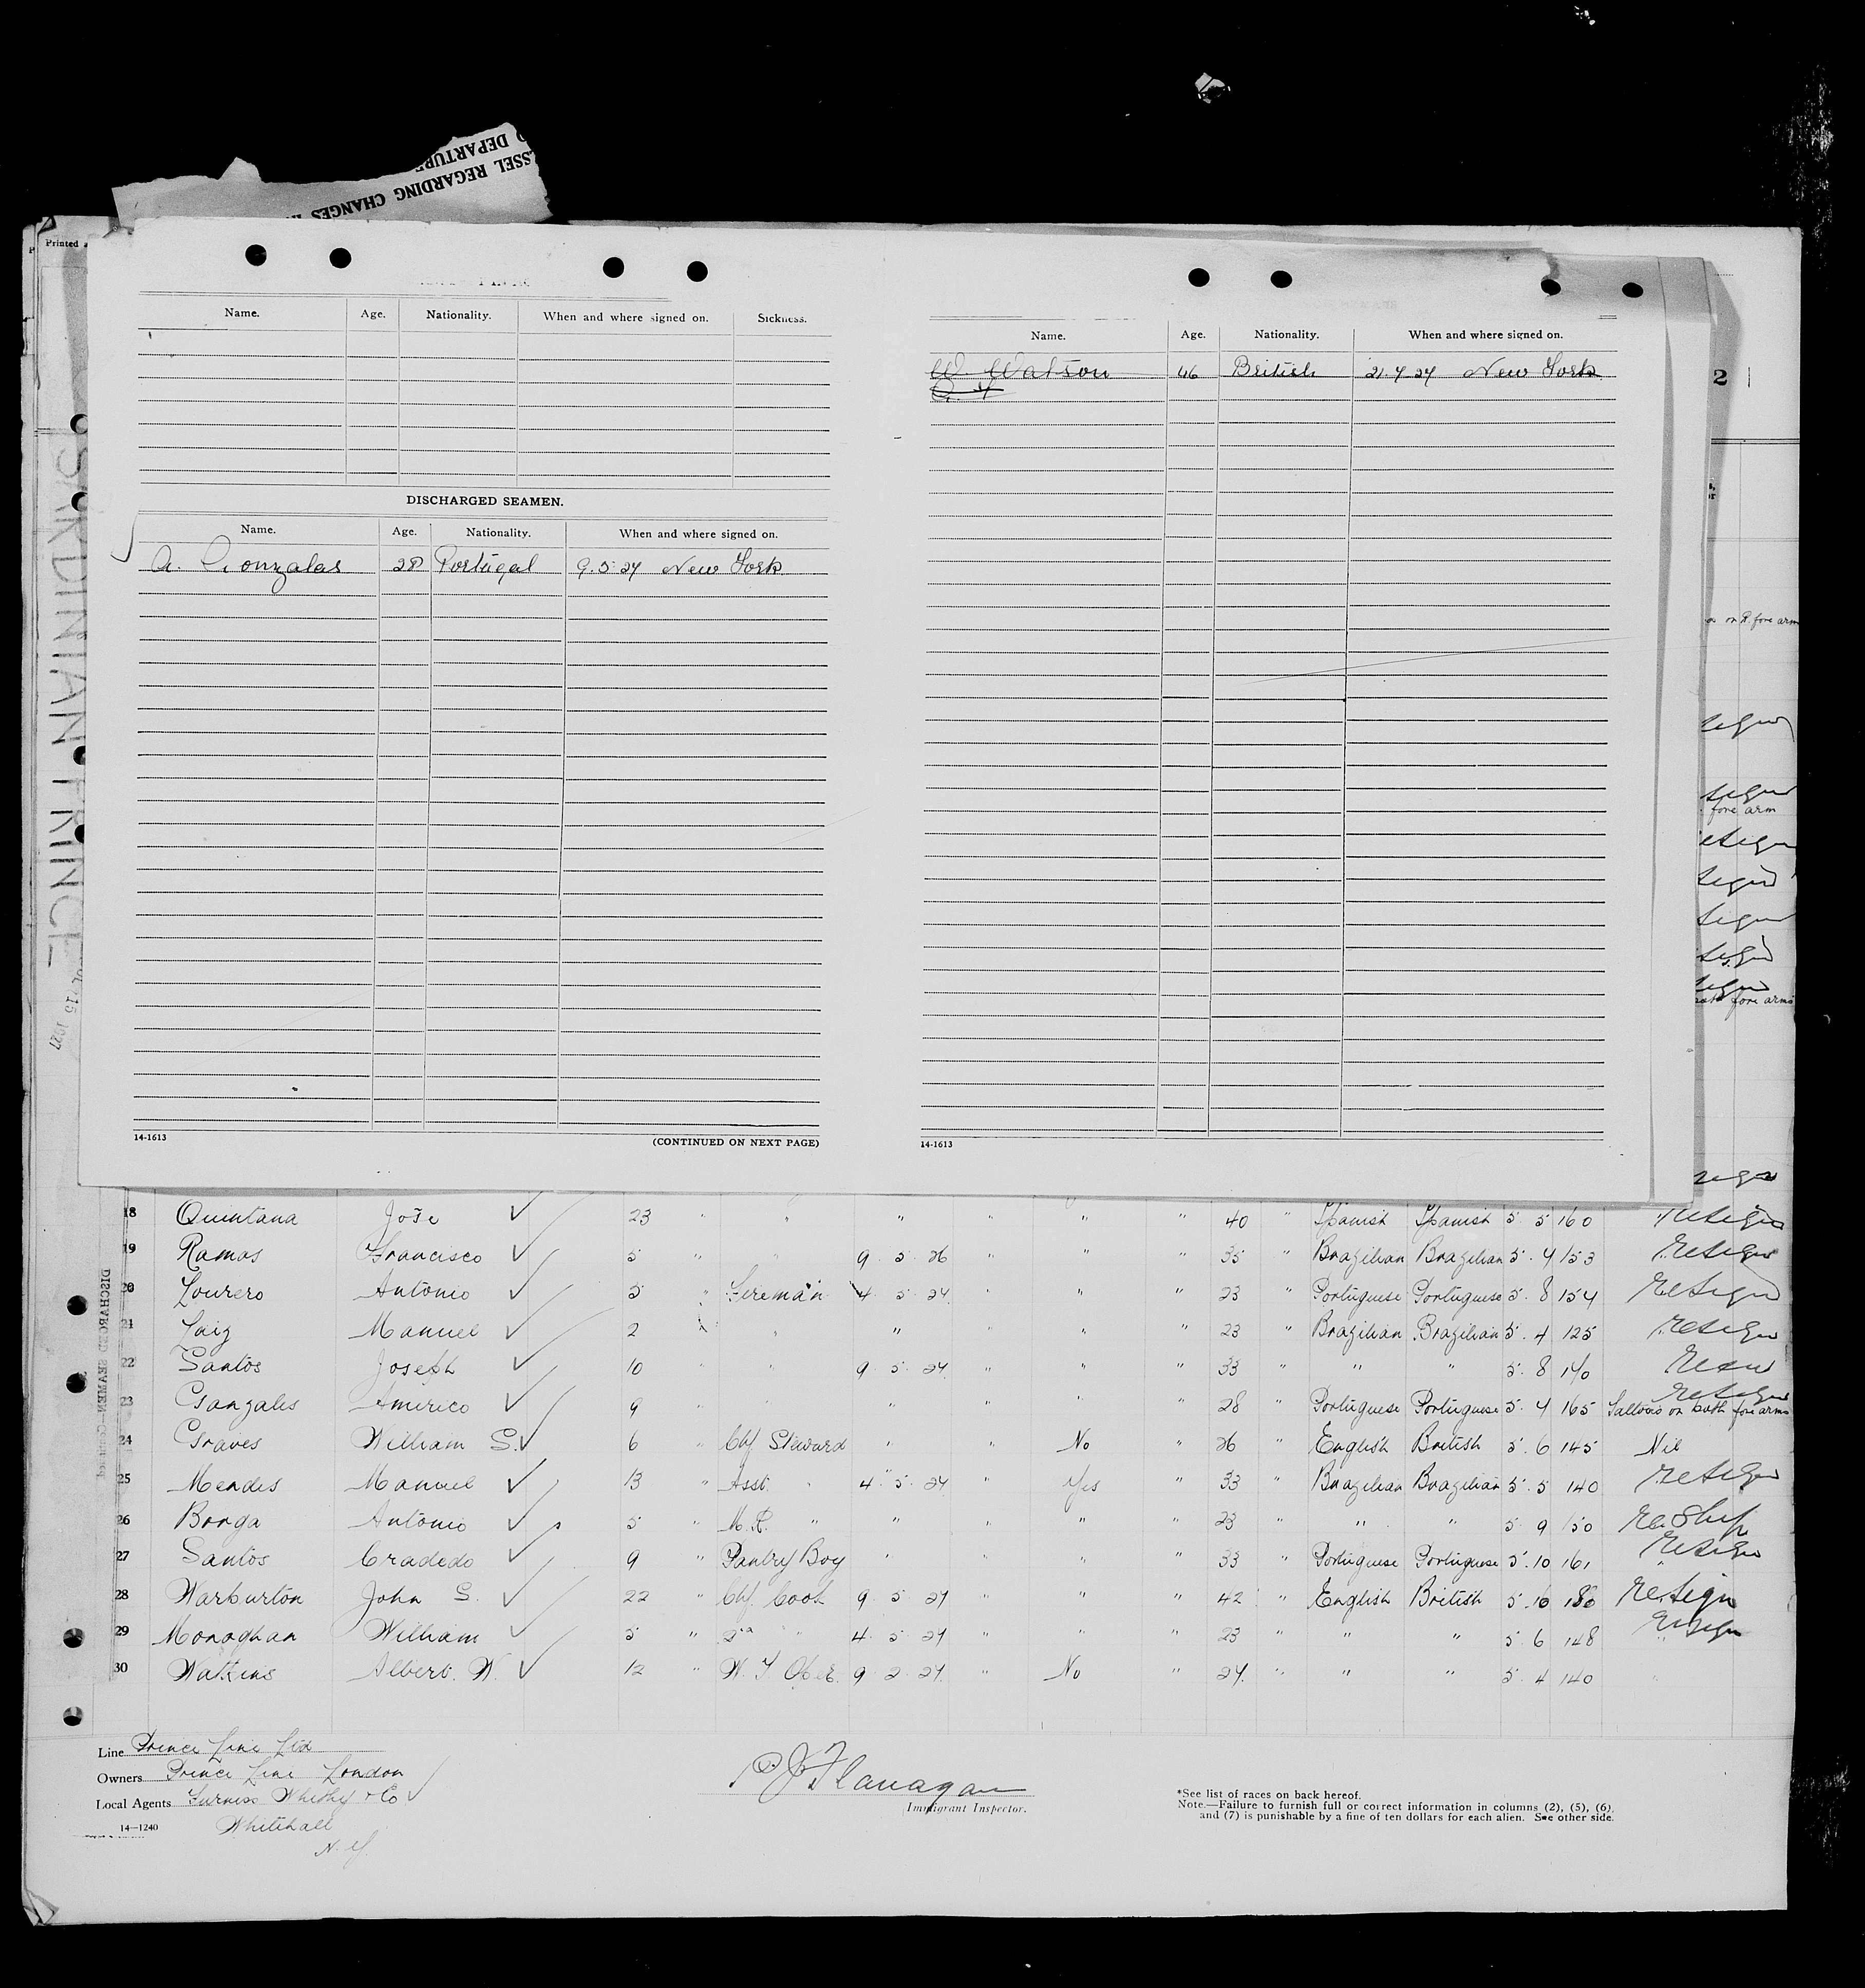 SSEL REGARDING CHANGES
DEPARTURE
Printed
Name. Age. Nationality. When and where signed on. Sickness.
DISCHARGED SEAMEN.
Name. Age. Nationality. When and where signed on.
A. Gonzalas 28 Portugal 9.5.24 New York
14-1613 (CONTINUED ON NEXT PAGE)
Name. Age. Nationality. When and where signed on.
W. Watson 46 British 21.4.24 New York
14-1613
2
on R. fore arm
fore arm
fore arms
SARDINIAN PRINCE
15 1927
DISCHARGED SEAMEN—Continued
18 Quintana Jose 23 " " " " " " 40 " Spanish Spanish 5 5 160 resign
19 Ramos Francisco 5 " " 9 5 26 " " " 35 " Brazilian Brazilian 5.4 153 resign
20 Lourero Antonio 5 " Fireman 4 5 24 " " " 23 " Portuguese Portuguese 5.8 154 resign
21 Laiz Manuel 2 " " " " " 23 " Brazilian Brazilian 5.4 125 resign
22 Santos Joseph 10 " " 9.5.24 " " " 33 " " " 5.8 140
23 Gonzales Americo 9 " " " " " " 28 " Portuguese Portuguese 5.4 165 resign
Tattoos on both fore arms
24 Graves William S. 6 " Chf Steward " " No " 26 " English British 5.6 145 Nil
25 Mendes Manuel 13 " Asst. " 4.5.24 " Yes " 33 " Brazilian Brazilian 5.5 140 resign
26 Borga Antonio 5 " M.R. " " " " " 23 " " " 5 9 150 Re Ship
27 Santos 9 " Pantry Boy " " " " 33 " Portuguese Portuguese 5.10 161 resign
28 Warburton John S. 22 " Chf. Cook 9 5 24 " " " 42 " English British 5.10 180 resign
29 Monaghan William 5 " 2nd " 4.5.24 " " " 23 " " " 5 6 148 resign
30 Watkins Albert. W. 12 " W. T. Oper. 9 2 24 " No " 24 " " " 5.4 140 "
Line Prince Line Ltd
Owners Prince Line London
Local Agents Furness Whithy & Co
Whitehall
N.Y.
14—1240
P J Flanagan
Immigrant Inspector.
*See list of races on back hereof.
Note.—Failure to furnish full or correct information in columns (2), (5), (6),
and (7) is punishable by a fine of ten dollars for each alien. See other side.